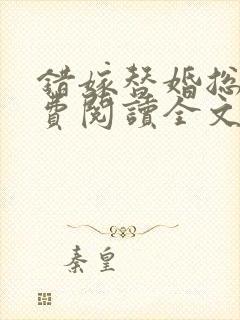 錯嫁替婚总
費閱讀全文
秦皇